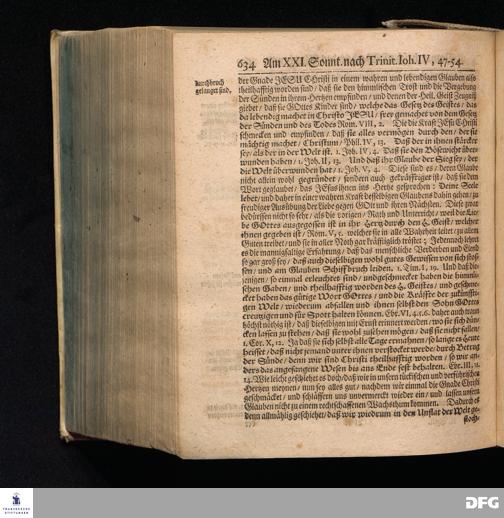 634 Am XXI. Sonnt. nach Trinit. Ioh. IV, 47-54.
durchbruch
gelanget sind,
der Gnade JESU CHristi in einem wahren und lebendigen Glauben also
theilhafftig worden sind/ daß sie den himmlischen Trost und die Vergebung
der Sünden in ihrem Hertzen empfinden/ und denen der Heil. Geist Zeugniß
giebet/ daß sie GOttes Kinder sind/ welche das Gesetz des Geistes/ das
da lebendig machet in Christo JESU/ frey gemachet von dem Gesetz
der Sünden und des Todes Rom. VIII, 2. Die die Krafft JEsu Christi
schmecken und empfinden/ daß sie alles vermögen durch den/ der sie
mächtig machet/ Christum/ Phil. IV, 13. Daß der in ihnen stärcker
sey/ als der in der Welt ist. 1. Joh. IV, 4. Daß sie den Bösewicht über-
wunden haben/ 1. Joh. II, 13. Und daß ihr Glaube der Sieg sey/ der
die Welt überwunden hat/ 1. Joh. V, 4. Diese sind es/ deren Glaube
nicht allein wohl gegründet/ sondern auch gekräfftiget ist/ daß sie dem
Wort geglaubet/ das JEsus ihnen ins Hertze gesprochen: Deine Seele
lebet/ und daher in einer wahren Krafft desselbigen Glaubens dahin gehen/ zu
freudiger Ausübung der Liebe gegen GOtt und ihren Nächsten. Diese zwar
bedürffen nicht so sehr/ als die vorigen/ Rath und Unterricht/ weil die Lie-
be GOttes ausgegossen ist in ihr Hertz durch den H. Geist/ welcher
ihnen gegeben ist/ Rom. V, 5. welcher sie in alle Wahrheit leitet/ zu allem
Guten treibet/ und sie in aller Noth gar kräfftiglich tröstet; Jedennoch lehret
es die mannigfaltige Erfahrung/ daß das menschliche Verderben und Elend
so gar groß sey/ daß auch dieselbigen wohl gutes Gewissen von sich stos-
sen/ und am Glauben Schiffbruch leiden. 1. Tim. I, 19. Und daß die-
jenigen/ so einmal erleuchtet sind/ und geschmecket haben die himmli-
schen Gaben/ und theilhafftig worden des H. Geistes/ und geschme-
cket haben das gütige Wort GOttes/ und die Kräffte der zukünffti-
gen Welt/ wiederum abfallen und ihnen selbst den Sohn GOttes
creutzigen und für Spott halten können. Ebr. VI, 4.5.6. daher auch traun
höchst nöthig ist/ daß dieselbigen mit Ernst erinnert werden/ wo sie sich dün-
cken lassen zu stehen/ daß sie wohl zusehen mögen/ daß sie nicht fallen/
1. Cor. X, 12. Ja daß sie sich selbst alle Tage ermahnen/ so lange es heute
heisset/ daß nicht jemand unter ihnen verstocket werde/ durch Betrug
der Sünde/ denn wir sind Christi theilhafftig worden/ so wir an-
ders das angefangene Wesen bis ans Ende fest behalten. Ebr. III, 13.
14. Wie leicht geschiehet es doch/ daß wir in unsern tückischen und verführischen
Hertzen meynen/ nun sey alles gut/ nachdem wir einmal die Gnade Christi
geschmäcket/ und schläffern uns unvermerckt wieder ein/ und lassen unsern
Glauben nicht zu einem rechtschaffenen Wachsthum kommen. Dadurch es
denn allmählig geschiehet/ daß wir wiedrum in den Unflat der Welt ge-
FRANCKESCHE
STIFTUNGEN
DFG